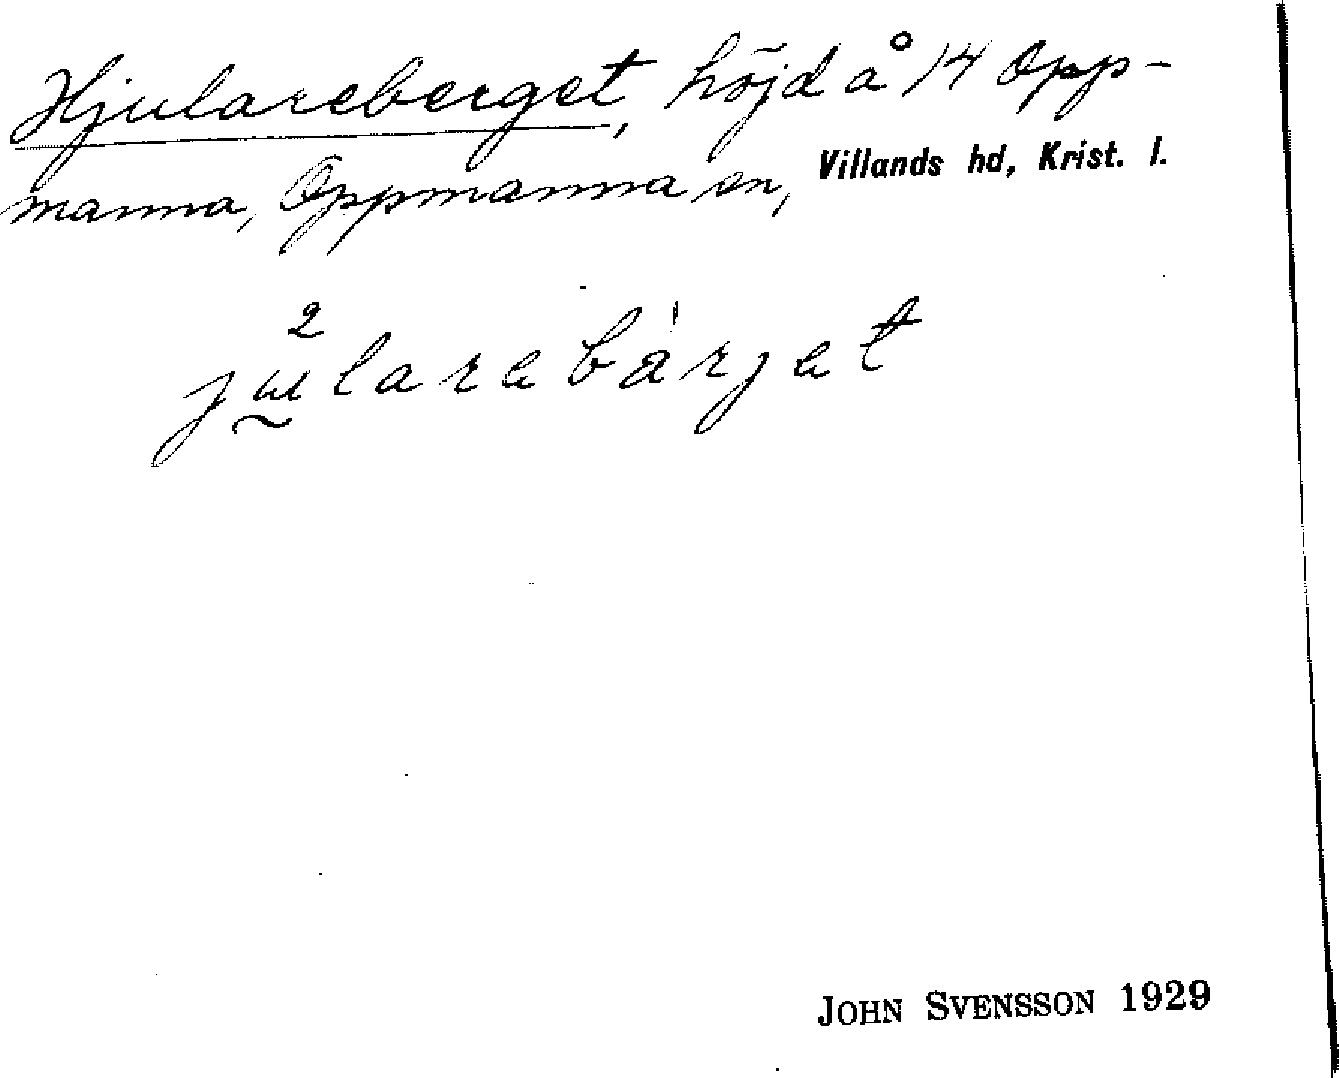 Hjulareberget, höjd å 14 Opp-
manna, Oppmanna sn, Villands hd, Krist. l.
2
jularebárjet
JOHN SVENSSON 1929